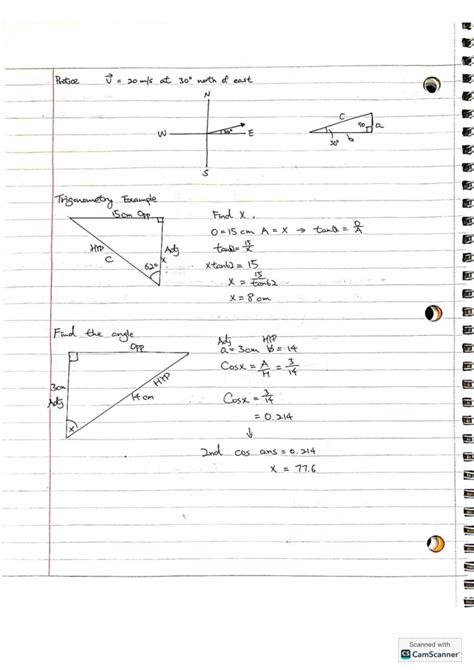 Pratice V⃗ = 20 m/s at 30° north of east
N
W 30° E
S
C 90 a
30° b
Trigonometry Example
15cm Opp
HYP Adj
C x
62°
Find x.
O = 15 cm A = x → tanθ = O/A
tanθ = 15/x
x tan62 = 15
x = 15/tan62
x = 8 cm
Find the angle
Opp
3cm
Adj
HYP
14 cm
x
Adj HYP
a = 3cm b = 14
Cosx = A/H = 3/14
Cosx = 3/14
= 0.214
↓
2nd cos ans = 0.214
x = 77.6
Scanned with
CS CamScanner